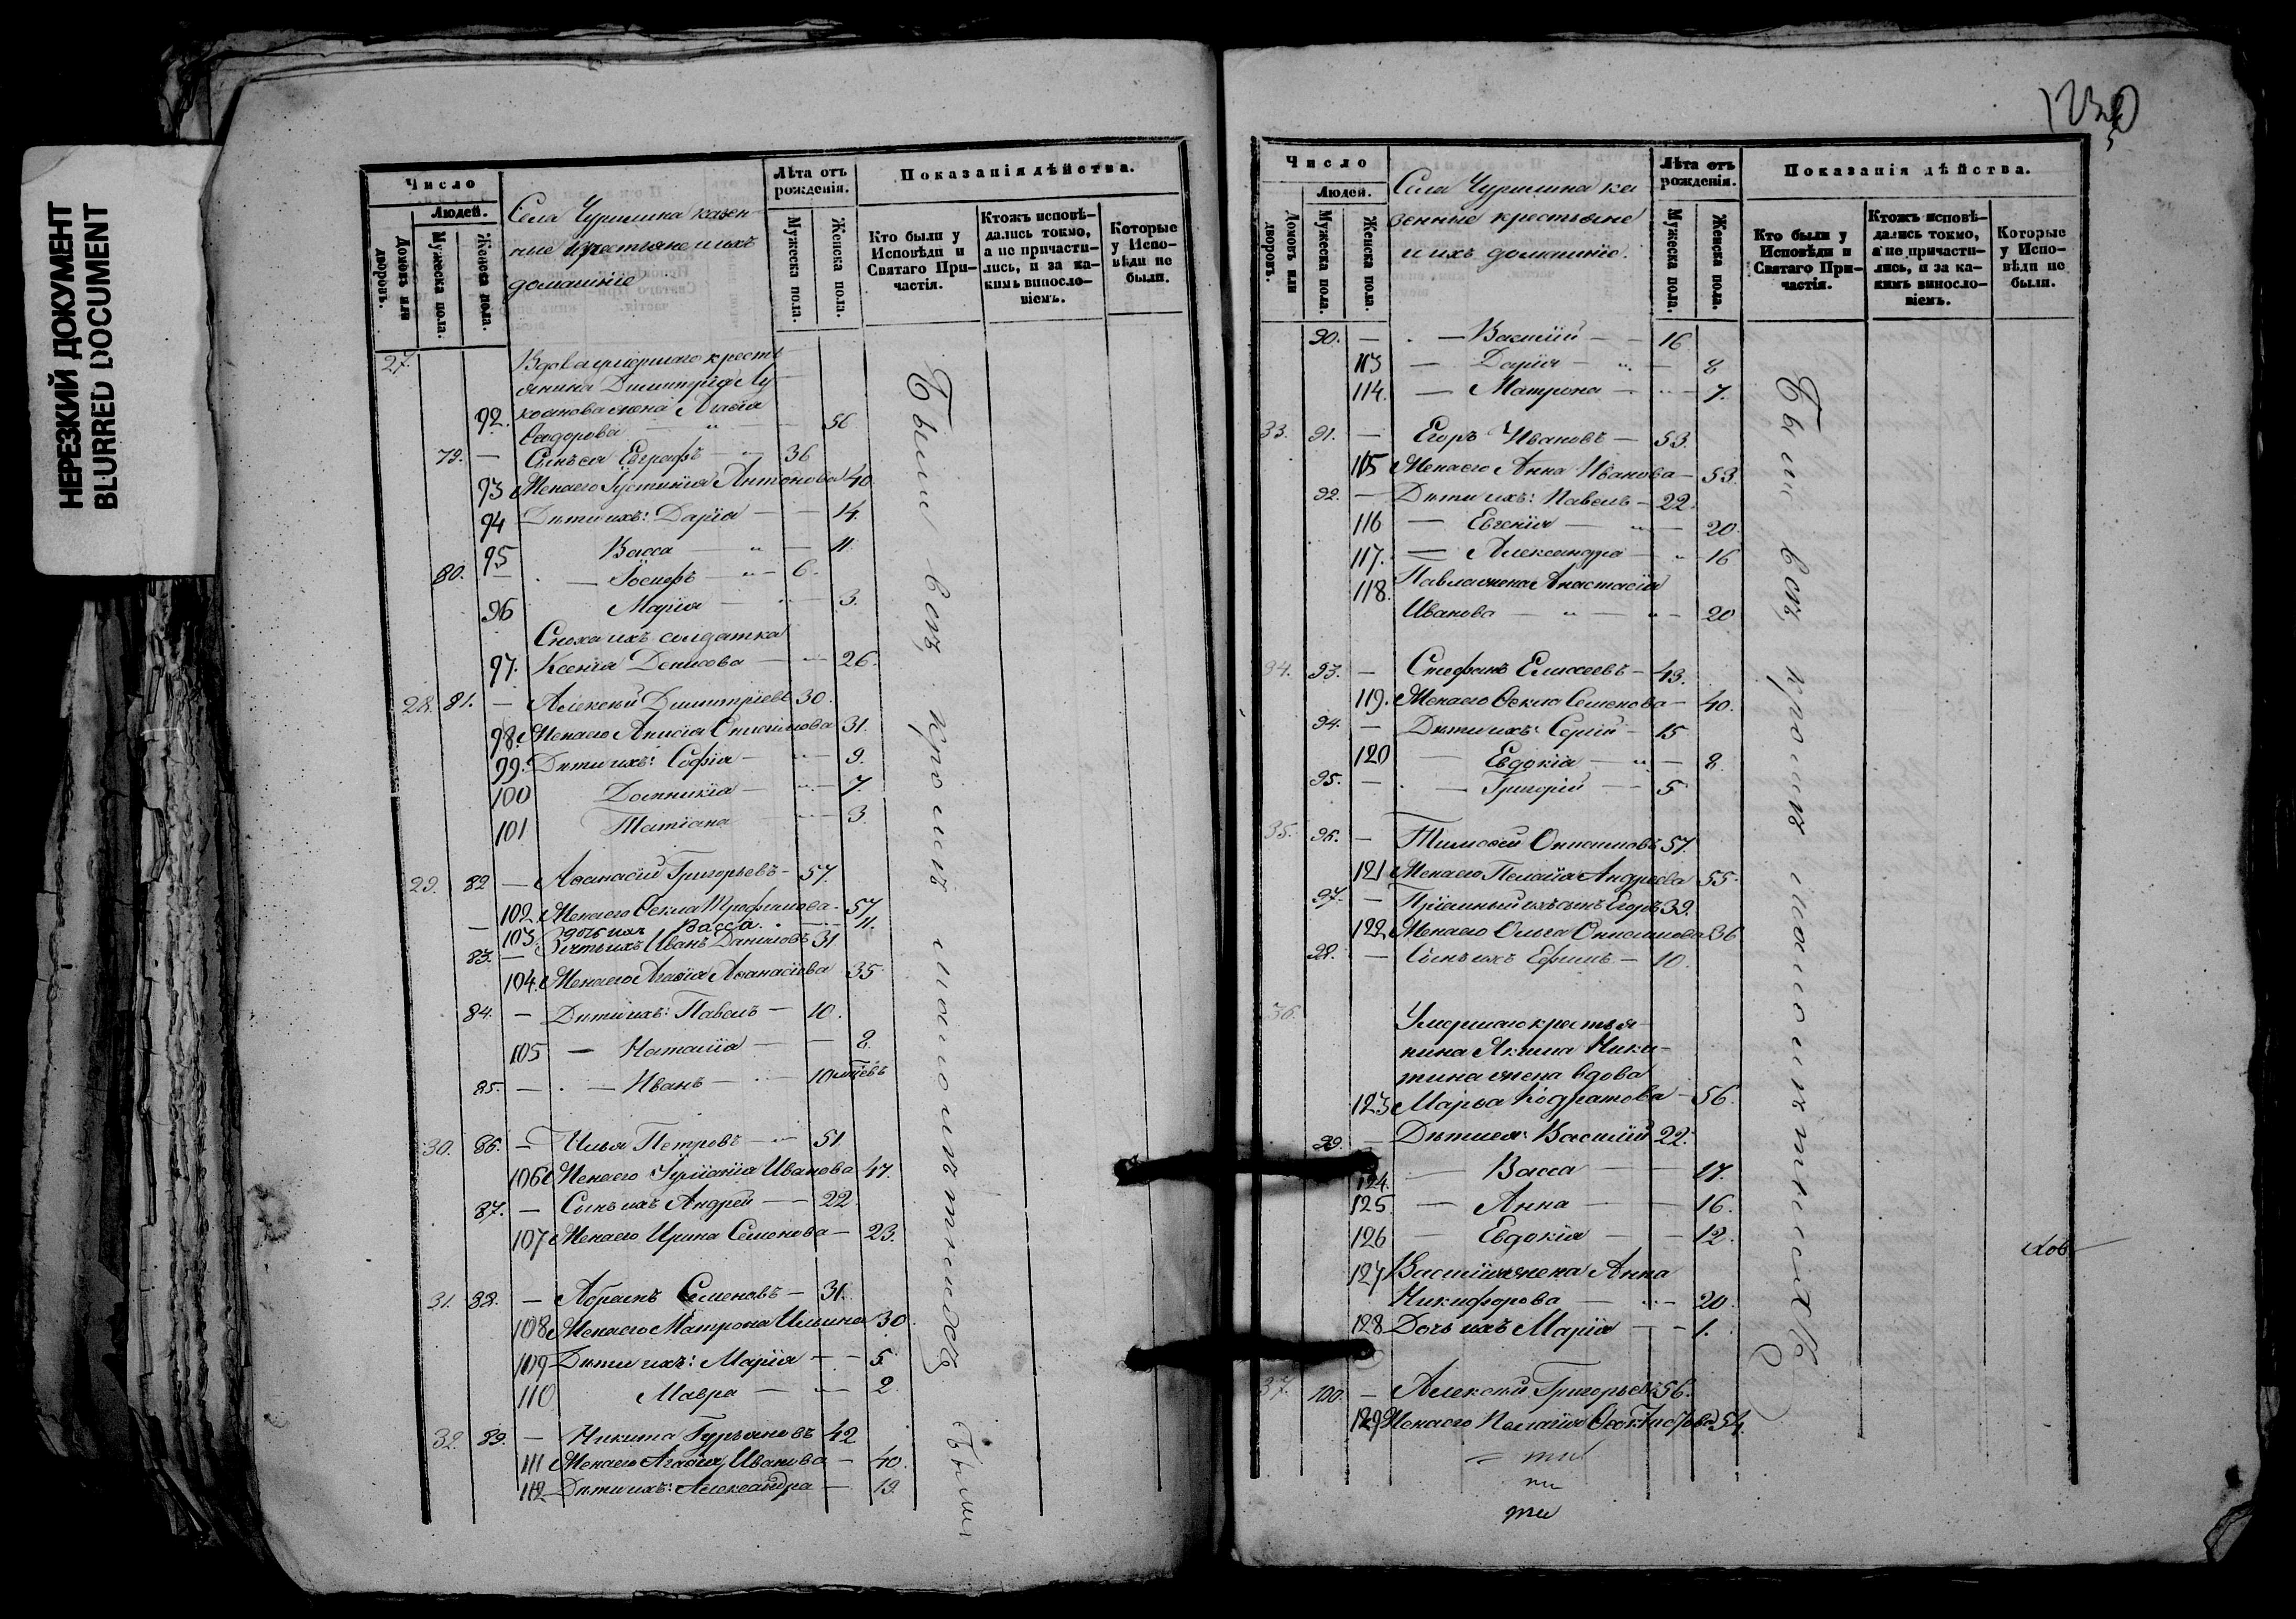 НЕРЕЗКИЙ ДОКУМЕНТ
BLURRED DOCUMENT
Число
Людей.
Домовъ или дворовъ.
Мужеска пола.
Женска пола.
Села Чурилина казен-
ные крестьяне и ихъ
домашніе
Лѣта отъ рожденія.
Мужеска пола.
Женска пола.
Показанія дѣйства.
Кто были у Исповѣди и Святаго Причастія.
Ктожъ исповѣ-
дались токмо,
а не причасти-
лись, и за ка-
кимъ винословіемъ.
Которые у Испо-
вѣди не были.
27. Вдова умершаго кресть
янина Димитрія Лу
92. жена Агаѳія
Ѳеодорова 56
79. — Сынъ ея Евграфъ — 36
93 Жена его Іустинія Антонова 40
94 Дѣти ихъ: Дарія — 14.
95 Васса — 11.
80. — Іосифъ — 6.
96 Марія — 3.
Сноха ихъ солдатка
97. Ксенія Денисова — 26.
28. 81. — Алексѣй Димитріевъ 30.
98. Жена его Анисія Онисимова 31.
99. Дѣти ихъ: Софія — 9.
100 Домникія — 7.
101 Татіана — 3.
29. 82 — Аѳанасій Григорьевъ — 57.
102. Жена его Ѳекла Трофимова — 57
103. Дочь ихъ Васса. 11.
83. — Зять ихъ Иванъ Даниловъ 31
104. Жена его Агаѳія Аѳанасіева 35
84. — Дѣти ихъ: Павелъ — 10.
105 — Наталія — 8.
85. — Иванъ — 10 мцевъ
30. 86. — Илья Петровъ — 51
106 Жена его Іуліанія Иванова 47.
87. — Сынъ ихъ Андрей — 22.
107 Жена его Ирина Семенова — 23.
31. 88. — Абрамъ Семеновъ — 31.
108 Жена его Матрона Ильина 30
109 Дѣти ихъ: Марія — 5.
110 Мавра — 2
32. 89. — Никита Гурьяновъ 42
111 Жена его Агаѳія Иванова — 40.
112 Дѣти ихъ: Александра — 19.
Были
1230
Число
Людей.
Домовъ или дворовъ.
Мужеска пола.
Женска пола.
Села Чурилина ка
зенные крестьяне
и ихъ домашніе.
Лѣта отъ рожденія.
Мужеска пола.
Женска пола.
Показанія дѣйства.
Кто были у Исповѣди и Святаго Причастія.
Ктожъ исповѣ-
дались токмо,
а не причасти-
лись, и за ка-
кимъ винословіемъ.
Которые у Испо-
вѣди не были.
90. — Василій — 16
113 — Дарія — 8
114. — Матрона — 7.
33. 91. — Егоръ Ивановъ — 53.
115 Жена его Анна Иванова — 53.
92. — Дѣти ихъ: Павелъ — 22.
116 — Евгенія — 20.
117. — Александра — 16
118. Павла жена Анастасія
Иванова — 20
34. 93. — Стефанъ Елисеевъ — 43.
119. Жена его Ѳекла Семенова — 40.
94. — Дѣти ихъ: Сергій — 15
120 — Евдокія — 8.
95. — Григорій — 5
35. 96. — Тимоѳей Онисимовъ 57.
121 Жена его Пелагія Андреева 55.
97. — Пріемный ихъ сынъ Егоръ 39.
122. Жена его Ольга Онисимова 36
98. — Сынъ ихъ Ефимъ — 10.
36. Умершаго крестья-
нина Якима Ники-
тина жена вдова
123 Марѳа Кодратова — 56.
99. — Дѣти ея: Василій 22.
124. — Васса — 17.
125. — Анна — 16.
126 — Евдокія — 12.
127 Василія жена Анна
Никифорова — 20.
128 Дочь ихъ Марія — 1.
37. 100. — Алексѣй Григорьевъ 56.
129 Жена его Пелагія Ѳеоктистова 54.